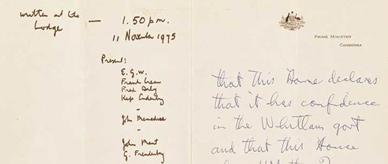 written at the
Lodge
— 1.50 p.m.
11 November 1975
Present:
E.G.W.
Frank Crean
Fred Daly
Kep Enderby
"
John Menadue
"
John Mant
G. Freudenberg
PRIME MINISTER
CANBERRA
that this House declares
that it has confidence
in the Whitlam govt
and that this House